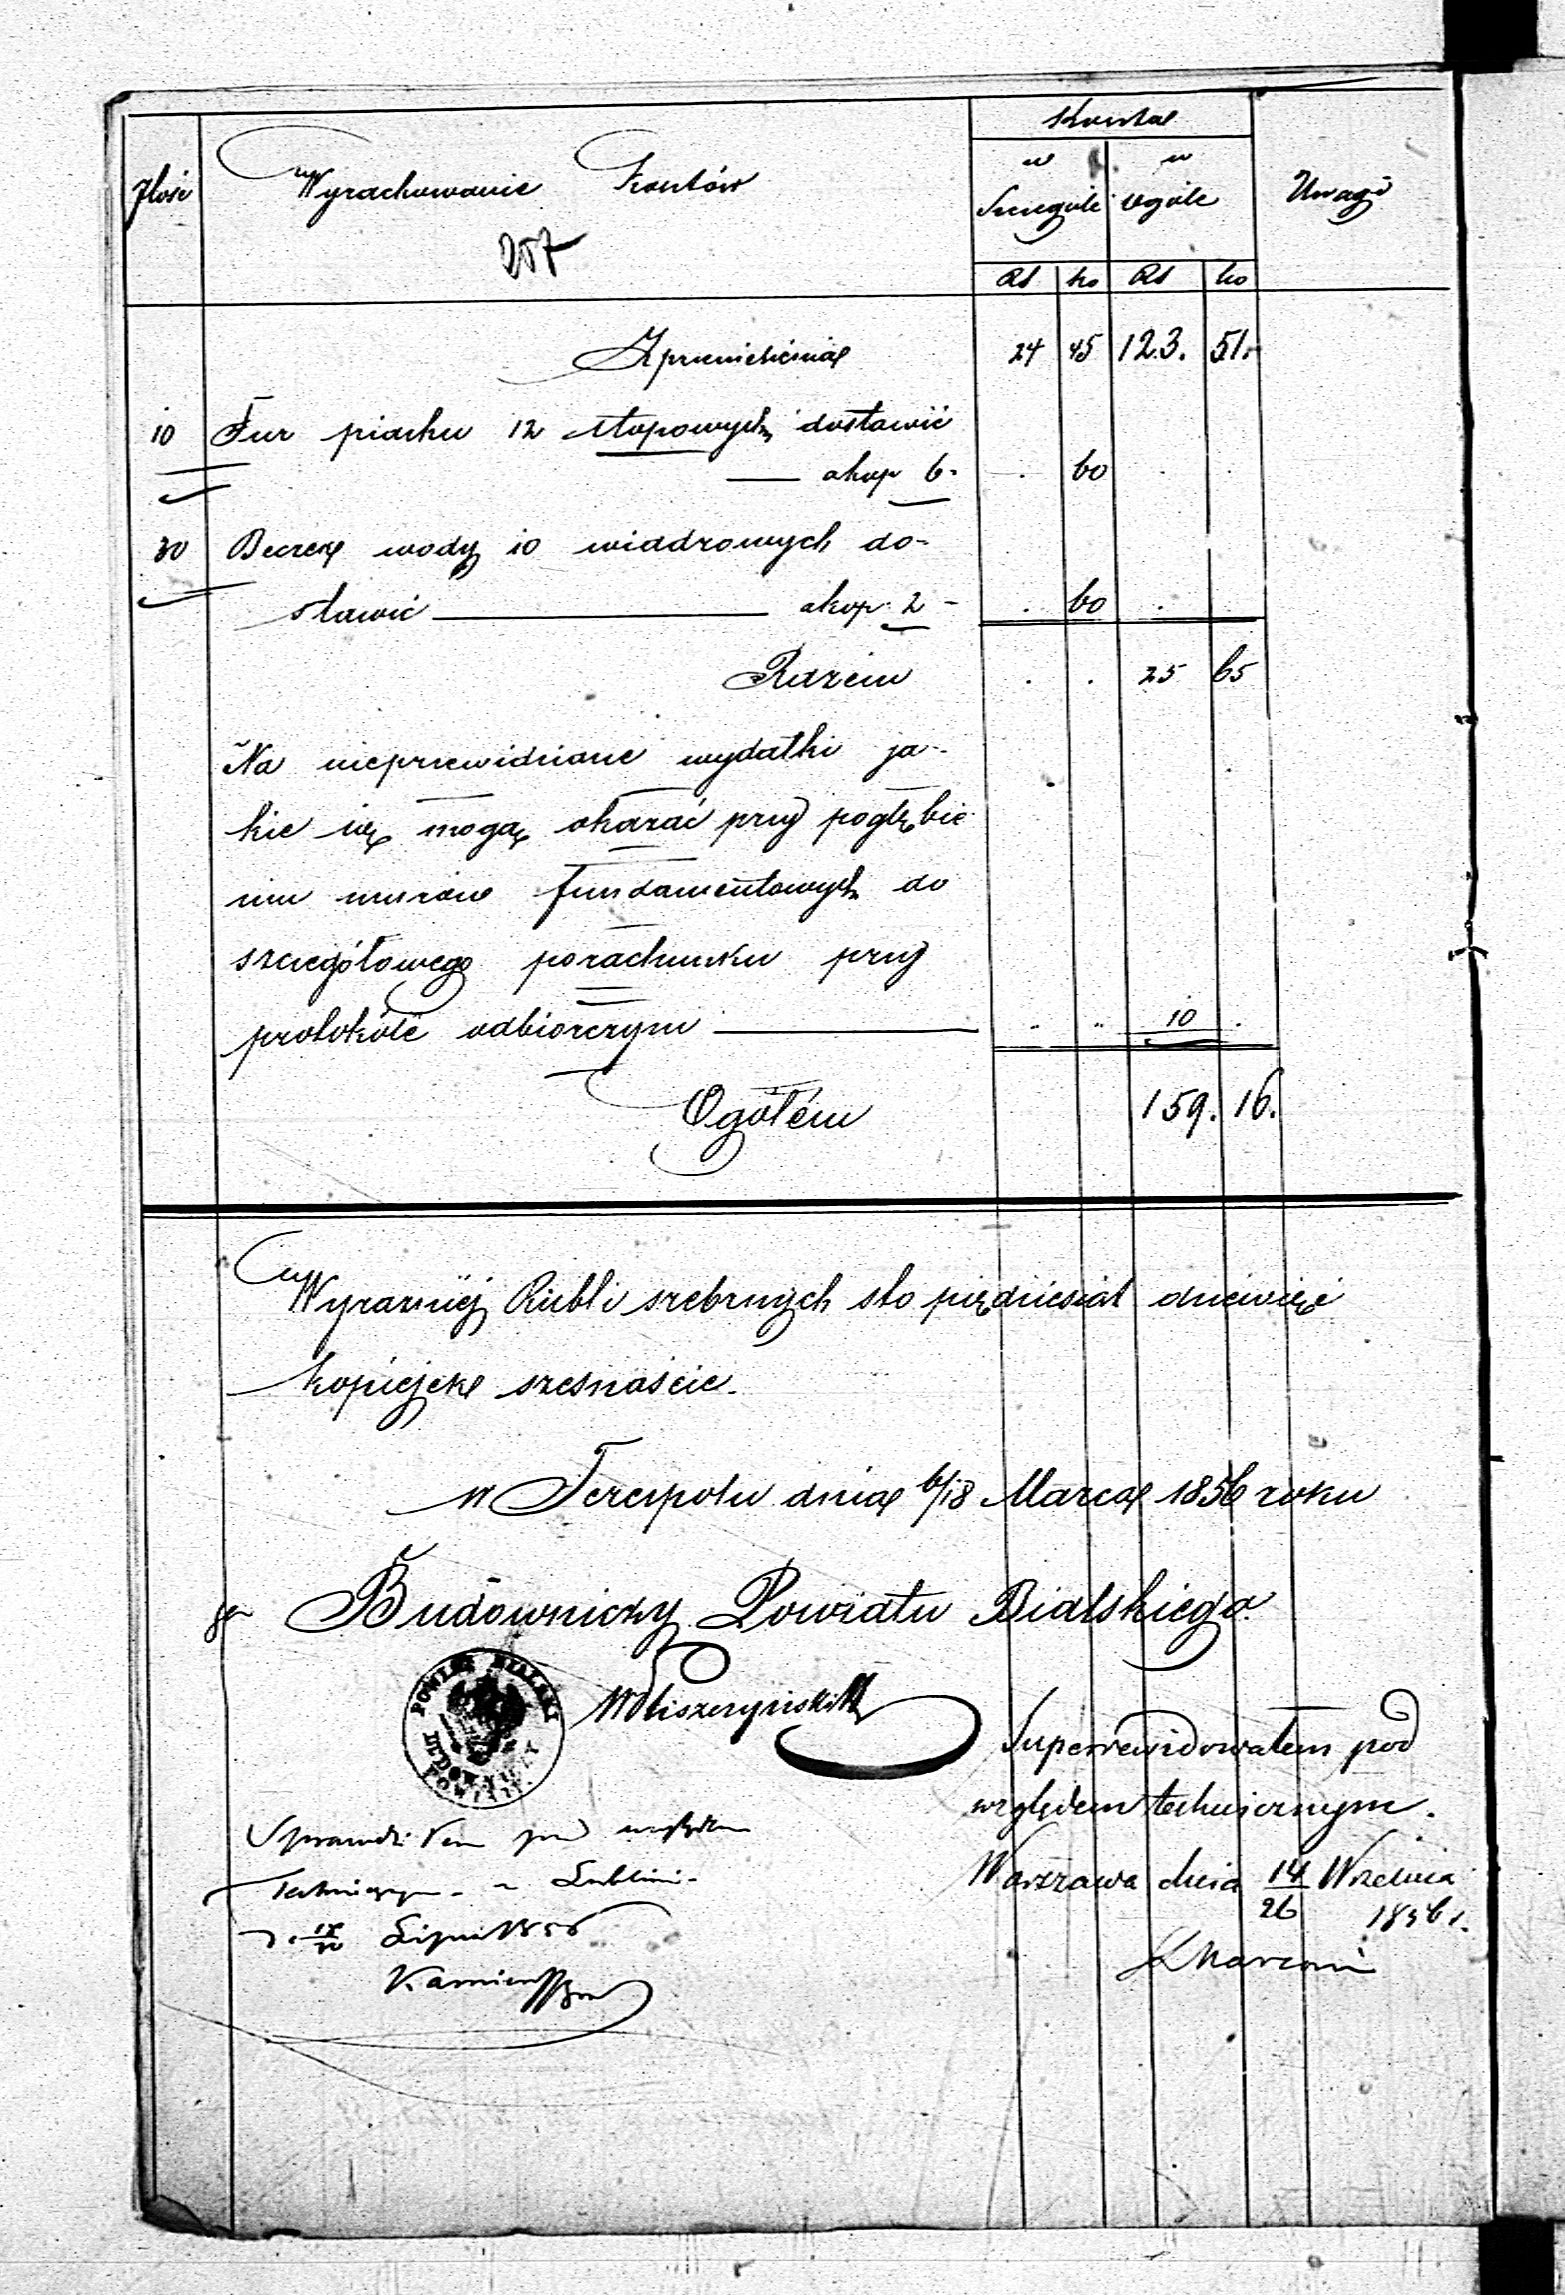 Ilość
Wyrachowanie Kosztów
Koszta
w Szczególe
w Ogóle
Uwagi
257
Rs ko Rs ko
Z przeniesienia 24 45 123. 51.
10 Fur piasku 12 stopowych dostawić
a kop 6. . 60 . .
30 Beczek wody 10 wiadrowych do-
stawić a kop. 2 - . 60 . .
Razem . . 25 65
Na nieprzewidziane wydatki ja-
kie się mogą okazać przy pogłębie
niu murów fundamentowych do
szczegółowego porachunku przy
protokóle odbiorczym . .. 10 .
Ogółem 159. 16.
Wyraźniej Rubli srebrnych sto pięćdziesiąt dziewięć
kopiejek szesnaście.
w Terespolu dnia 6/18 Marca 1856 roku
Budowniczy Powiatu Bialskiego
POWIAT BIALSKI
BUDOWNICZY
POWIATU
Superrewidowałem pod
względem technicznym.
Warszawa dnia 14/26 Września
1856 r.
Marconi
Sprawdziłem pod względem
Technicznym w Lublinie
d. Lipca 1856